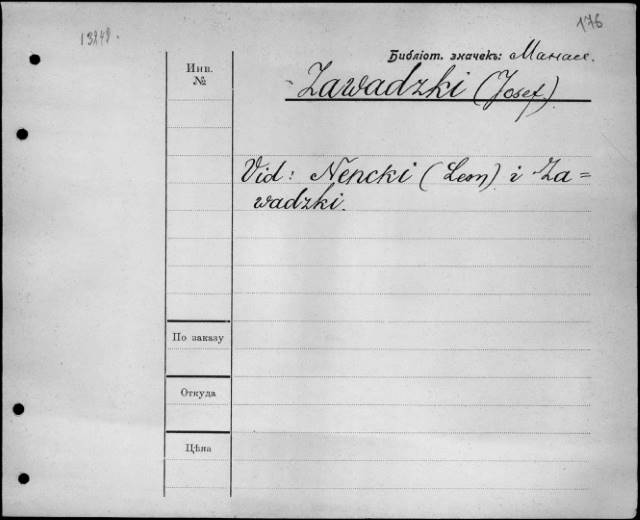 176
13248.
Библіот. значекъ: Манас.
Инв.
№
Zawadzki (Josef)
Vid: Nencki (Leon) i Za=
wadzki.
По заказу
Откуда
Цѣна